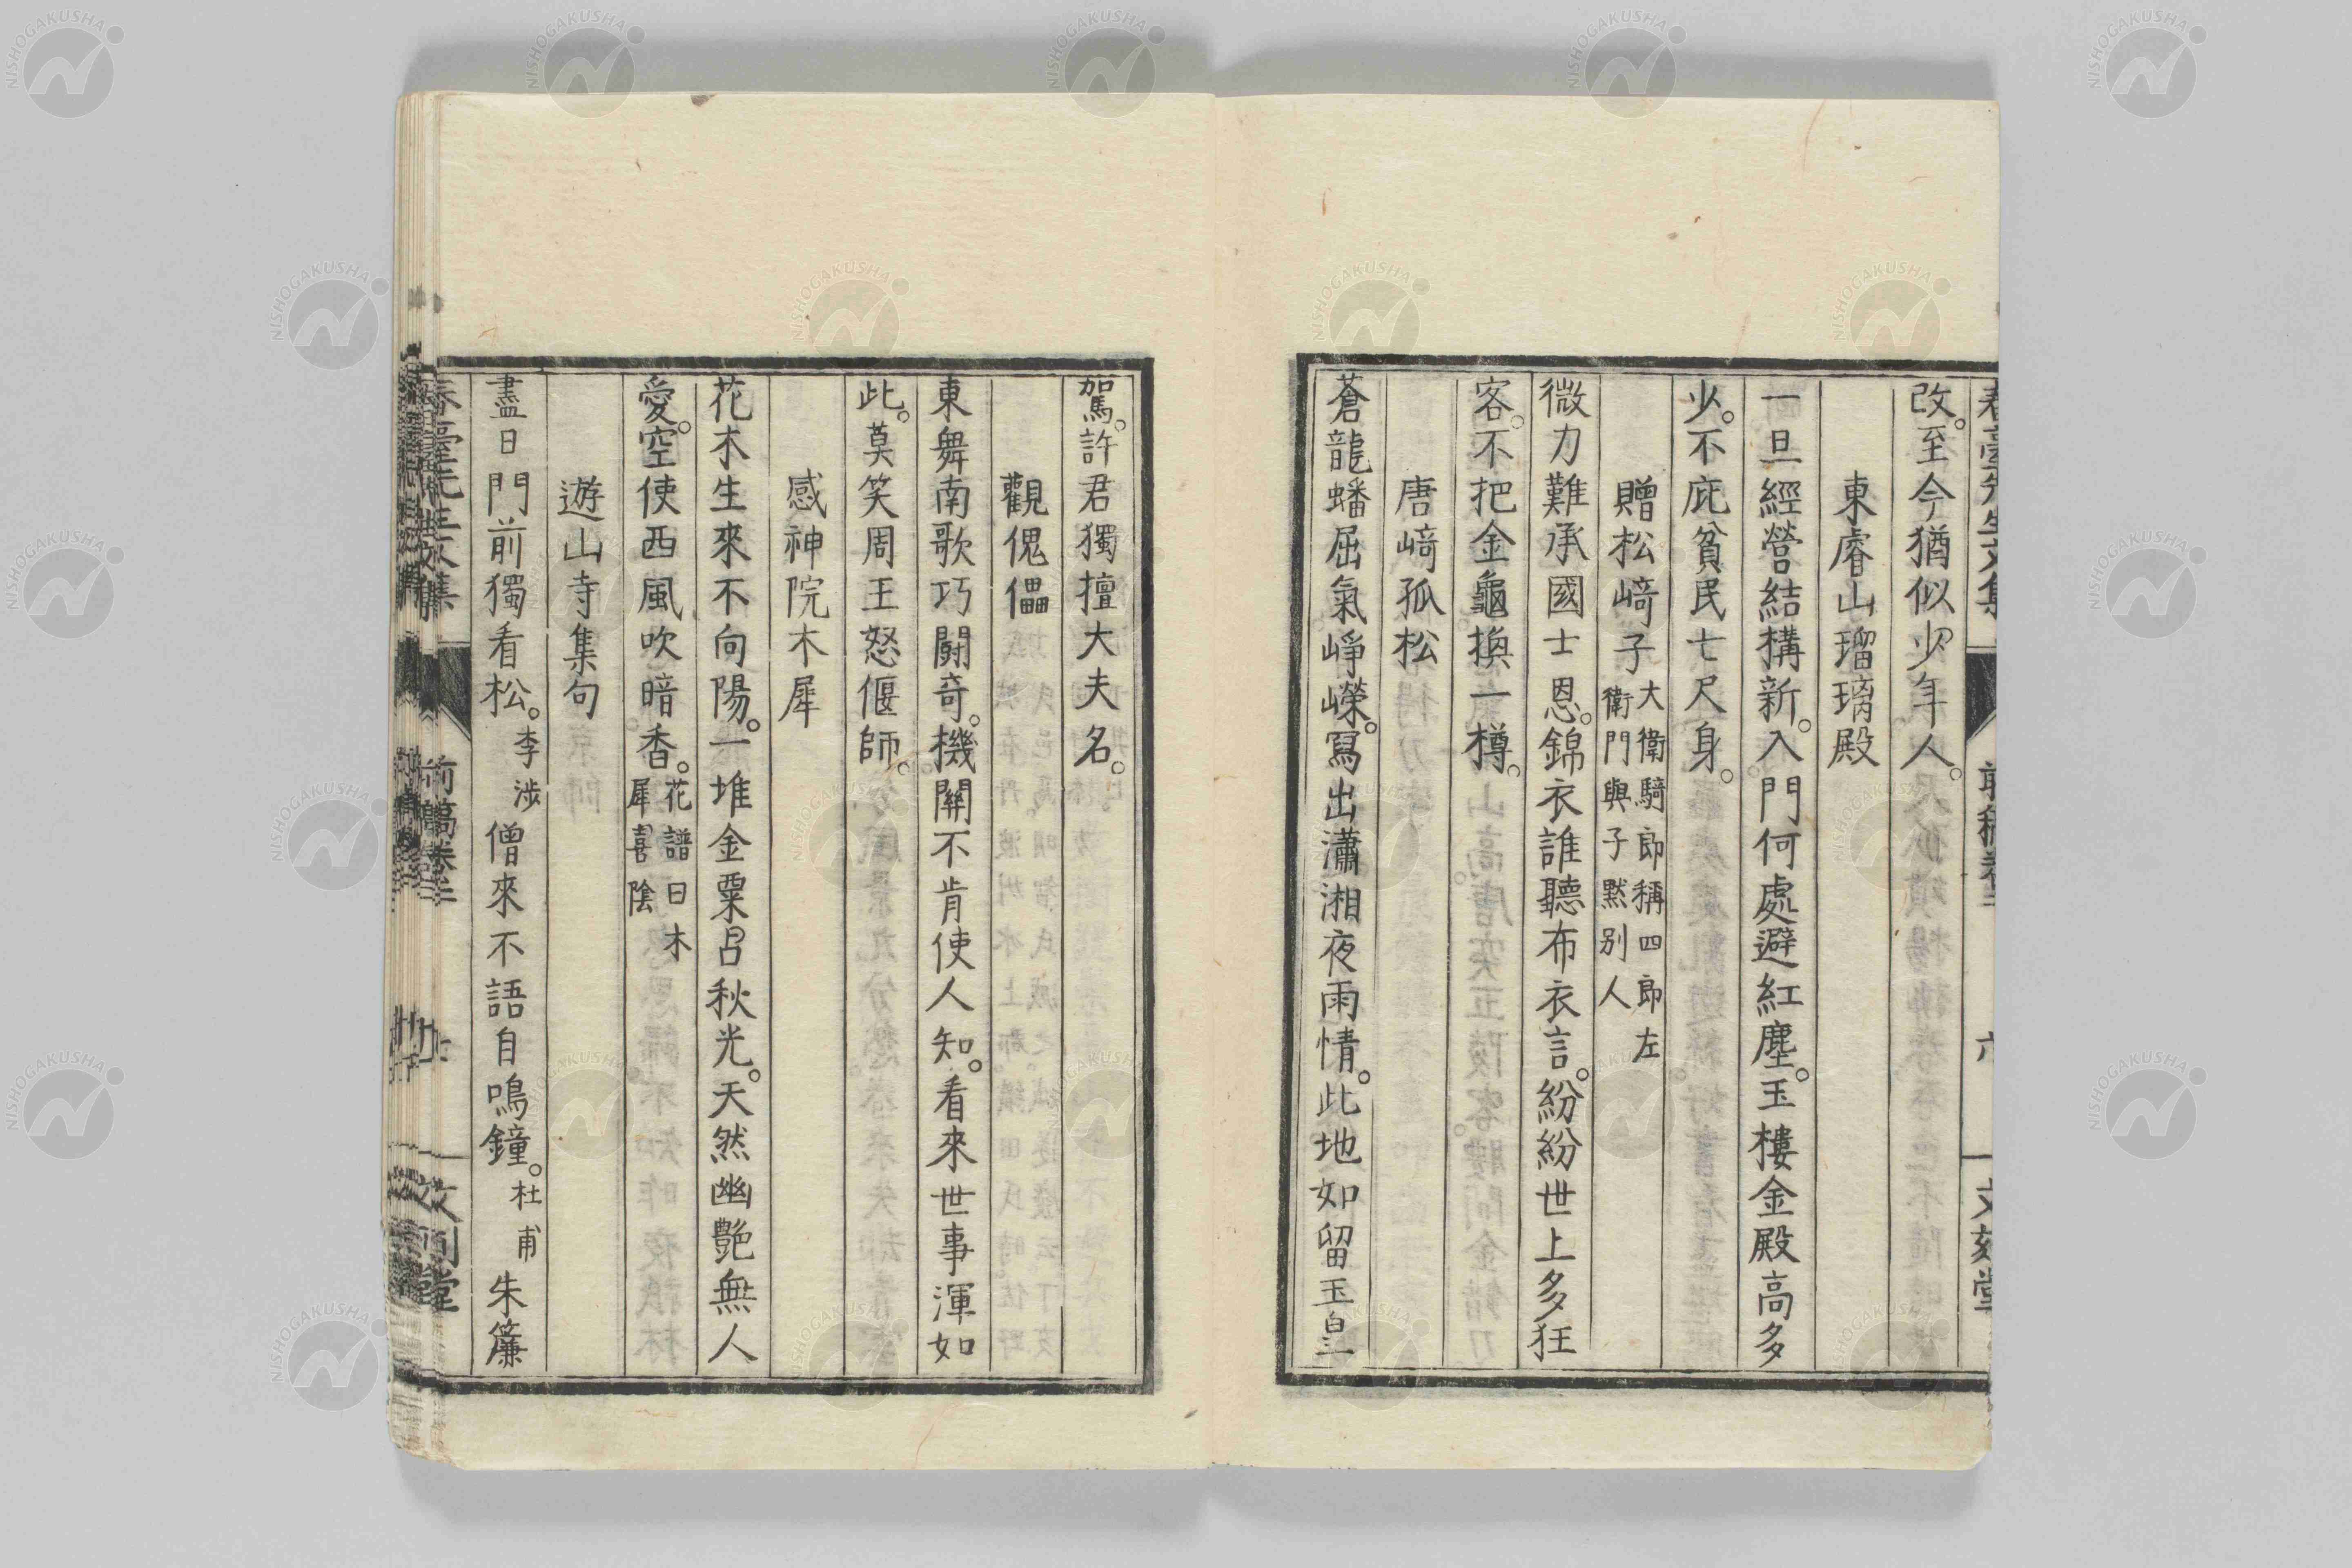 改。至今猶似少年人。
東睿山瑠璃殿
一旦經營結構新。入門何處避紅塵。玉樓金殿高多
少。不庇貧民七尺身。
贈松﨑子大衞騎郎稱四郎左
衞門與子默别人
微力難承國士恩。錦衣誰聽布衣言。紛紛世上多狂
客。不把金龜換一樽。
唐﨑孤松
蒼龍蟠屈氣崢嶸。冩出瀟湘夜雨情。此地如留玉皇
駕。許君獨擅大夫名。
觀傀儡
東舞南歌巧鬪奇。機關不肯使人知。看來世事渾如
此。莫笑周王怒偃師。
感神院木犀
花木生來不向陽。一堆金粟占秋光。天然幽艶無人
愛。空使西風吹暗香。花譜曰木
犀喜陰
遊山寺集句
盡日門前獨看松。李涉僧來不語自鳴鐘。杜甫朱簾
NISHOGAKUSHA